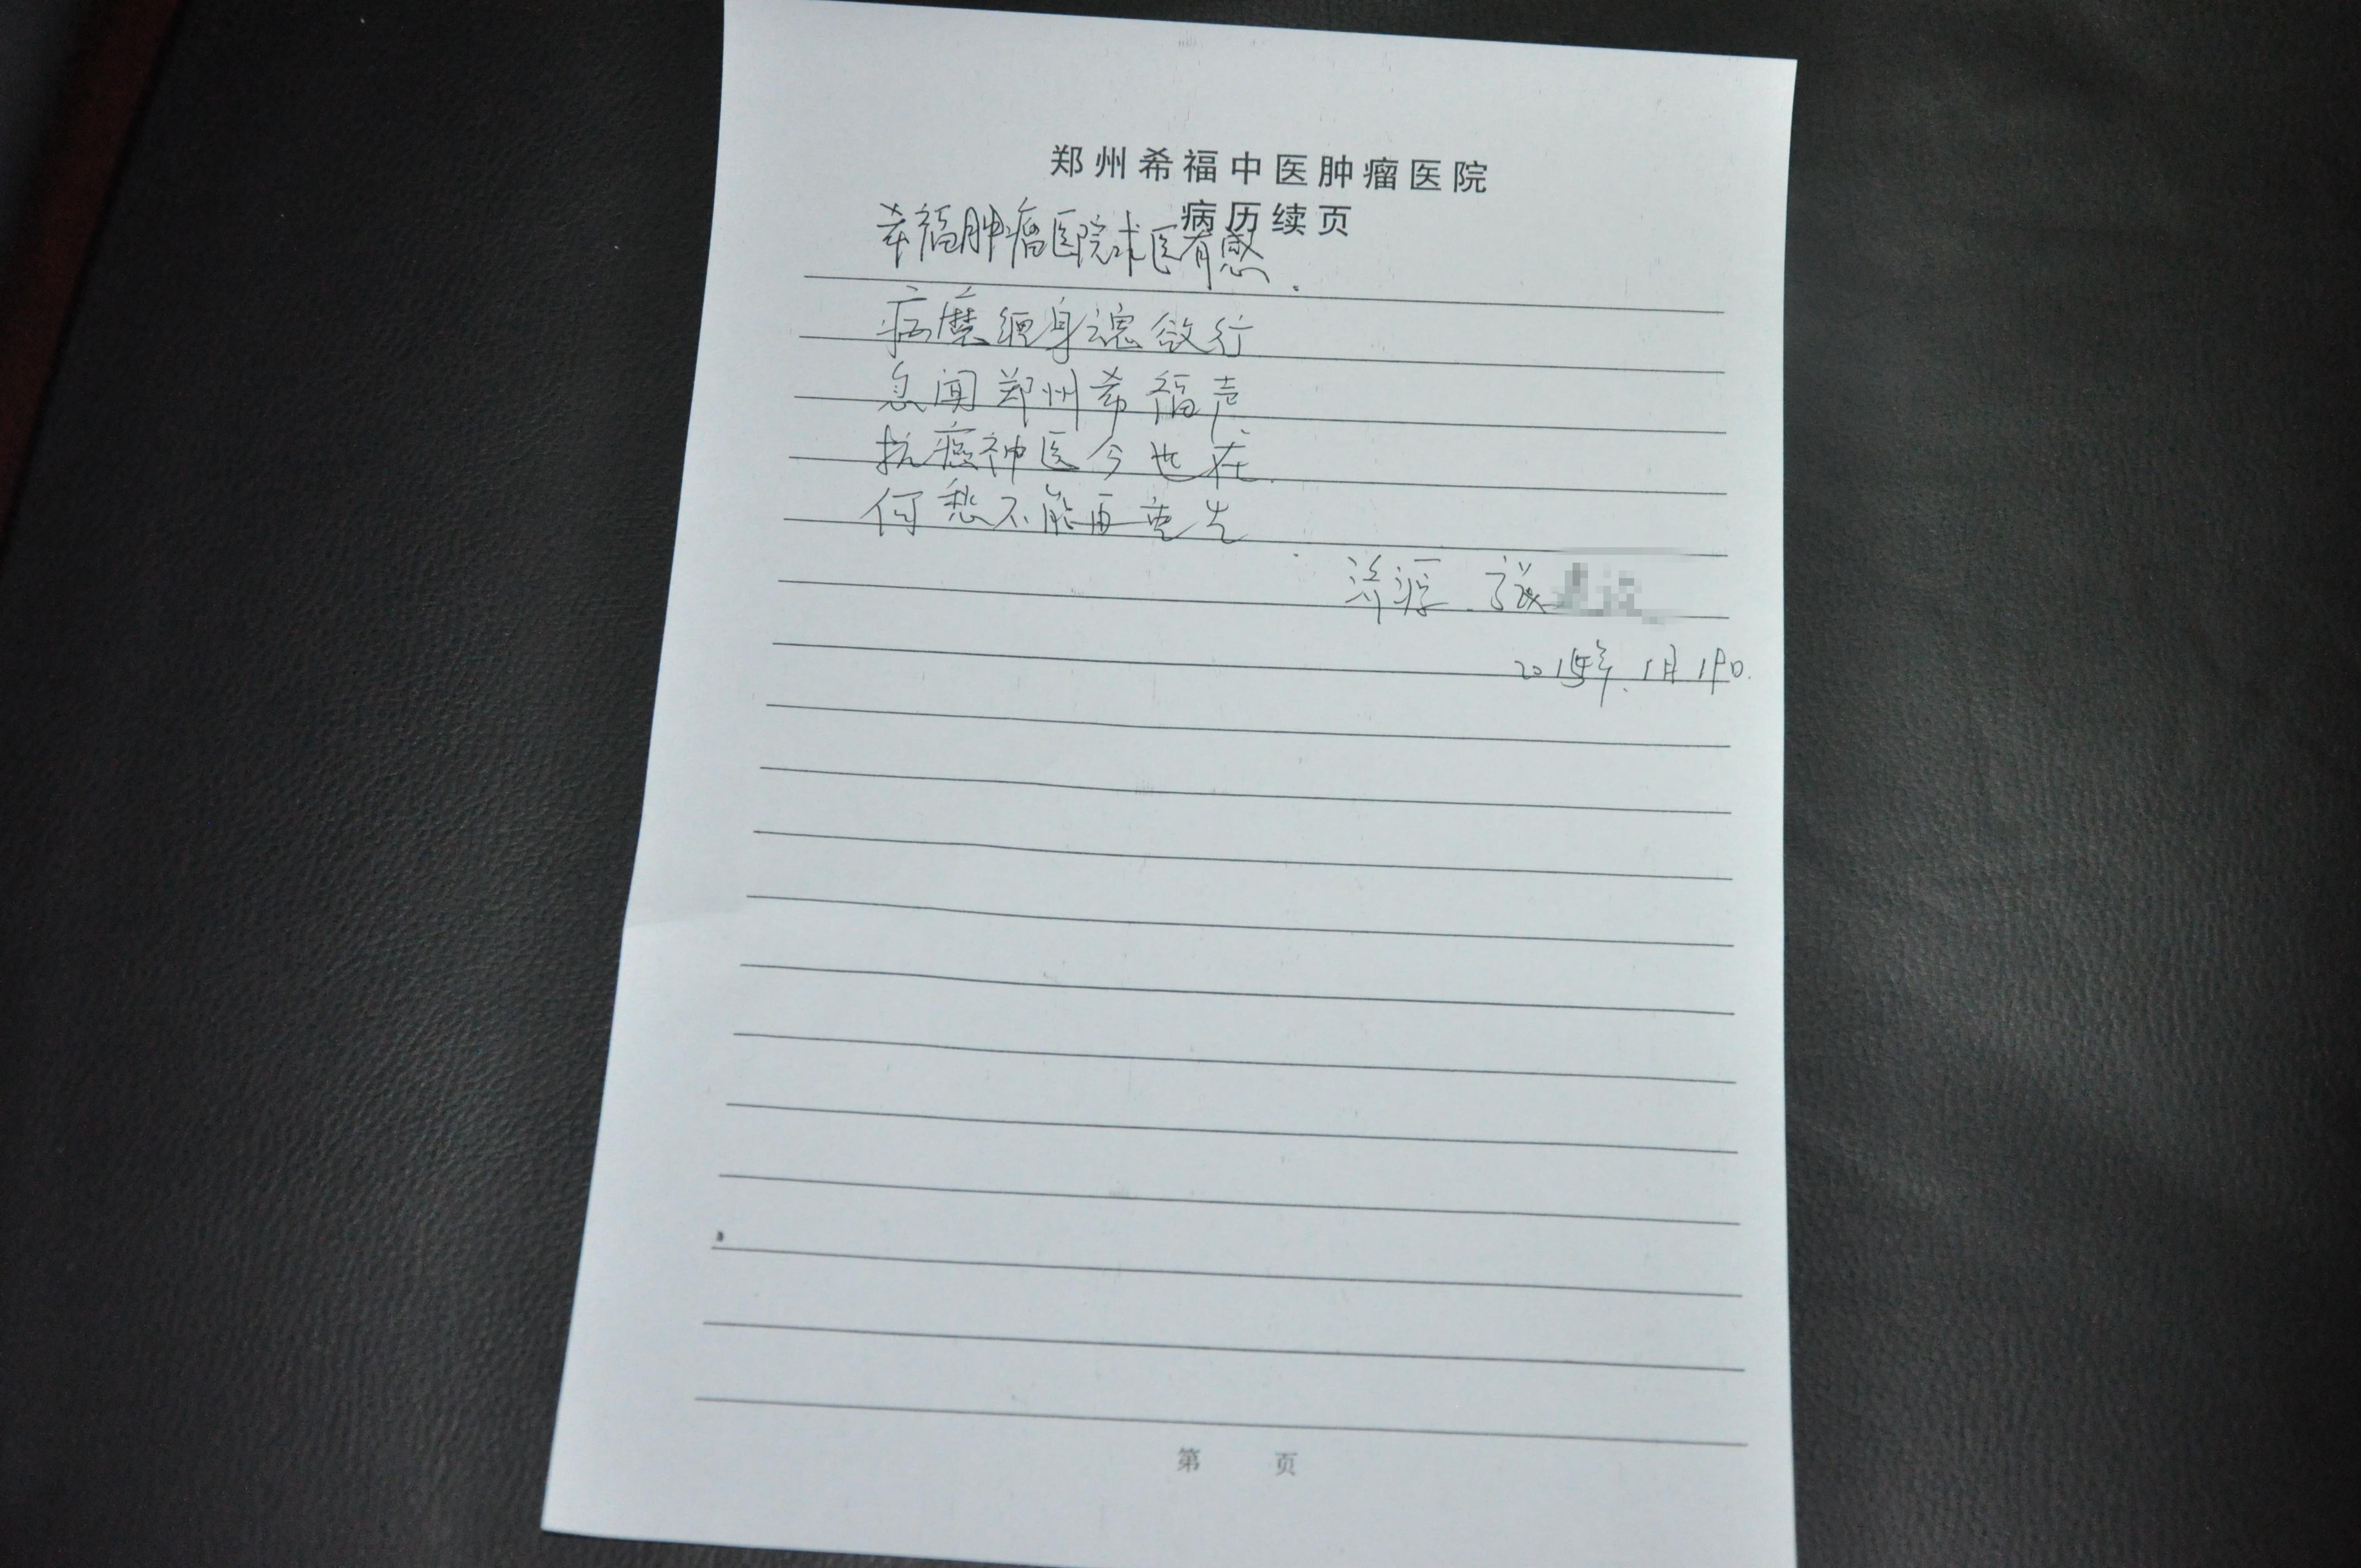 郑州希福中医肿瘤医院
病历续页
希福肿瘤医院求医有感.
病魔缠身魂欲行
忽闻郑州希福声
抗癌神医今也在.
何愁不能再重生.
济源.张
2015年.1月19日.
第 页